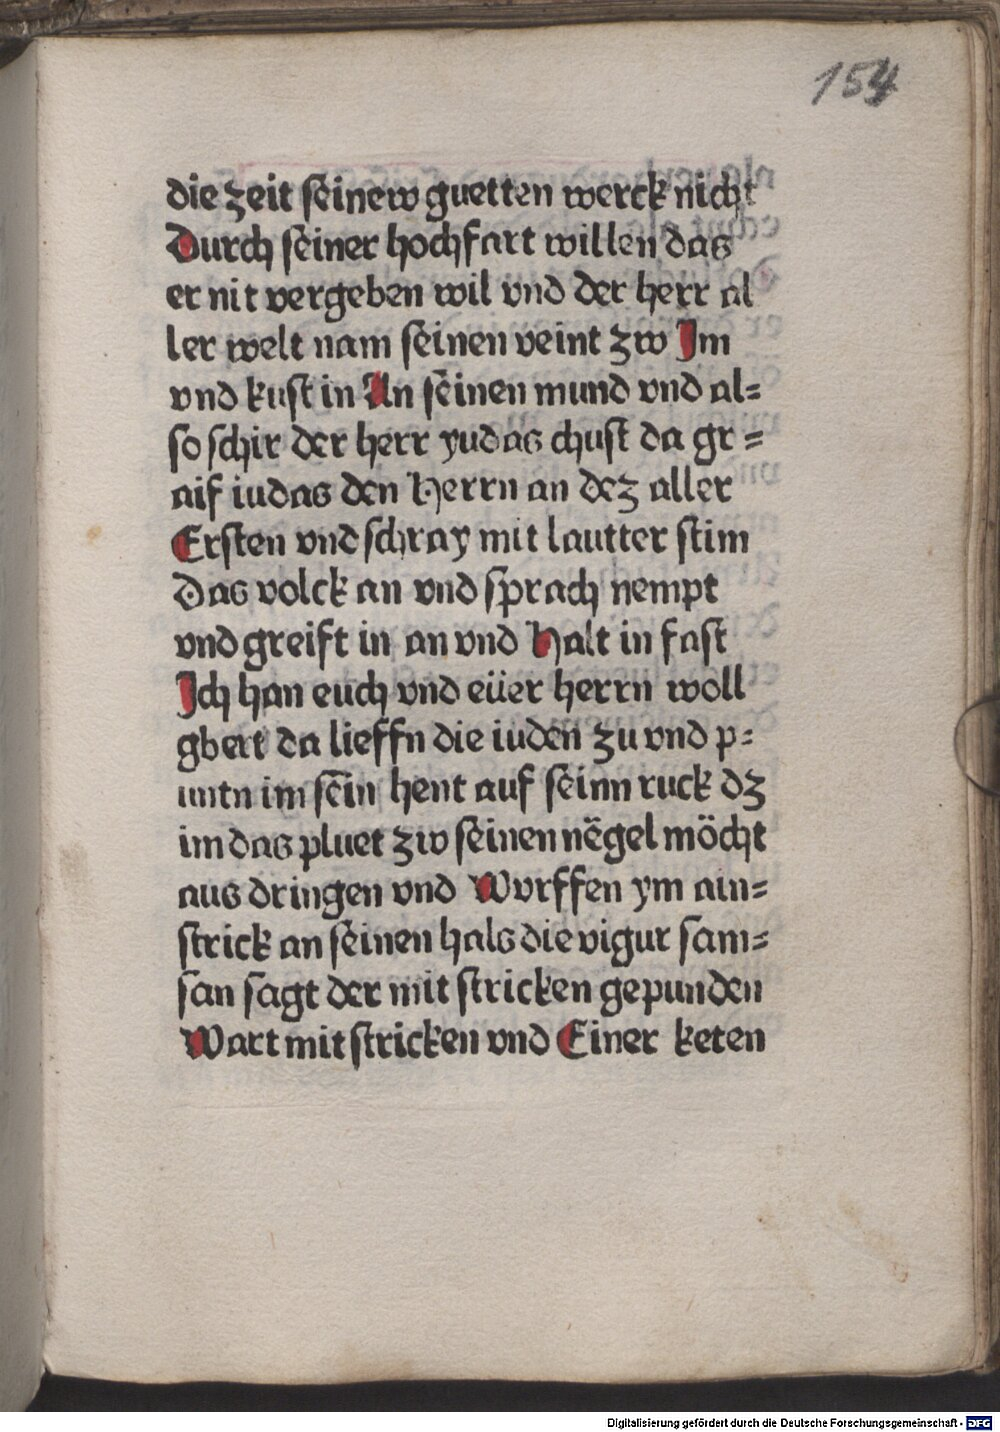 154
die zeit seinew guetten werck nicht
Durch seiner hochfart willen das
er nit vergeben wil vnd der herr al
ler welt nam seinen veint zw Im
vnd kust in An seinen mund vnd al=
so schir der herr yudas chust da gr=
aif iudas den Herrn an dez aller
Ersten vnd schray mit lautter stim
Das volck an vnd sprach nempt
vnd greift in an vnd Halt in fast
Ich han euch vnd eüer herrn woll
gbert da lieffn die iuden zu vnd p=
untn im sein hent auf seinn ruck dz
im das pluet zw seinen nëgel möcht
aus dringen vnd Wurffen ym ain=
strick an seinen hals die vigur sam=
san sagt der mit stricken gepunden
Wart mit stricken vnd Einer keten
Digitalisierung gefördert durch die Deutsche Forschungsgemeinschaft - DFG